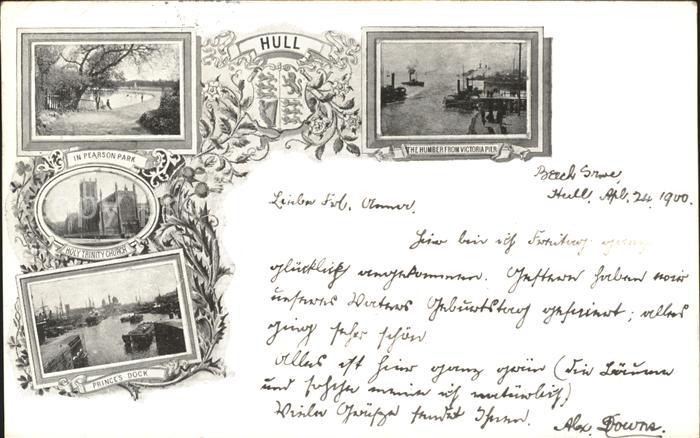 HULL
IN PEARSON PARK
THE HUMBER FROM VICTORIA PIER
HOLY TRINITY CHURCH
PRINCE'S DOCK
Hull, Apl. 24, 1900.
Liebe Frl. Anna.
Hier bin ich Freitag ganz
glücklich angekommen. Gestern haben wir
unseres Vaters Geburtstag gefeiert; alles
ging sehr schön
Alles ist hier ganz grün (die Bäume
und solche meine ich natürlich)
Viele Grüsze sendet Ihnen.
Alex. Downs.